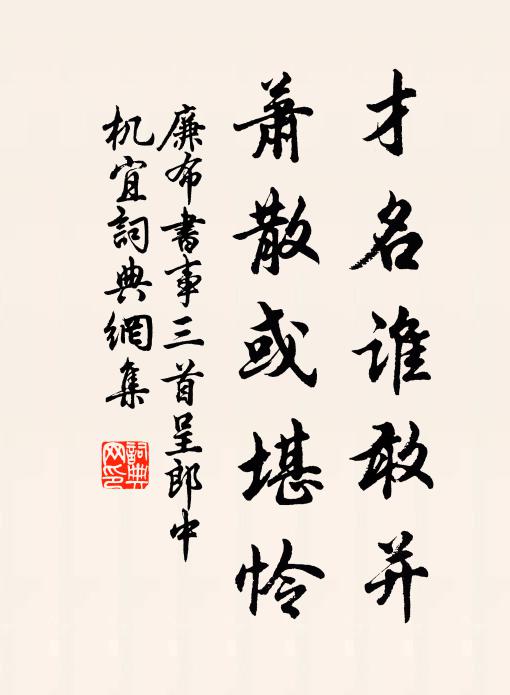 才名谁敢并
萧散或堪怜
廉布書事三首呈郎中
机宜詞典網集
詞典网印